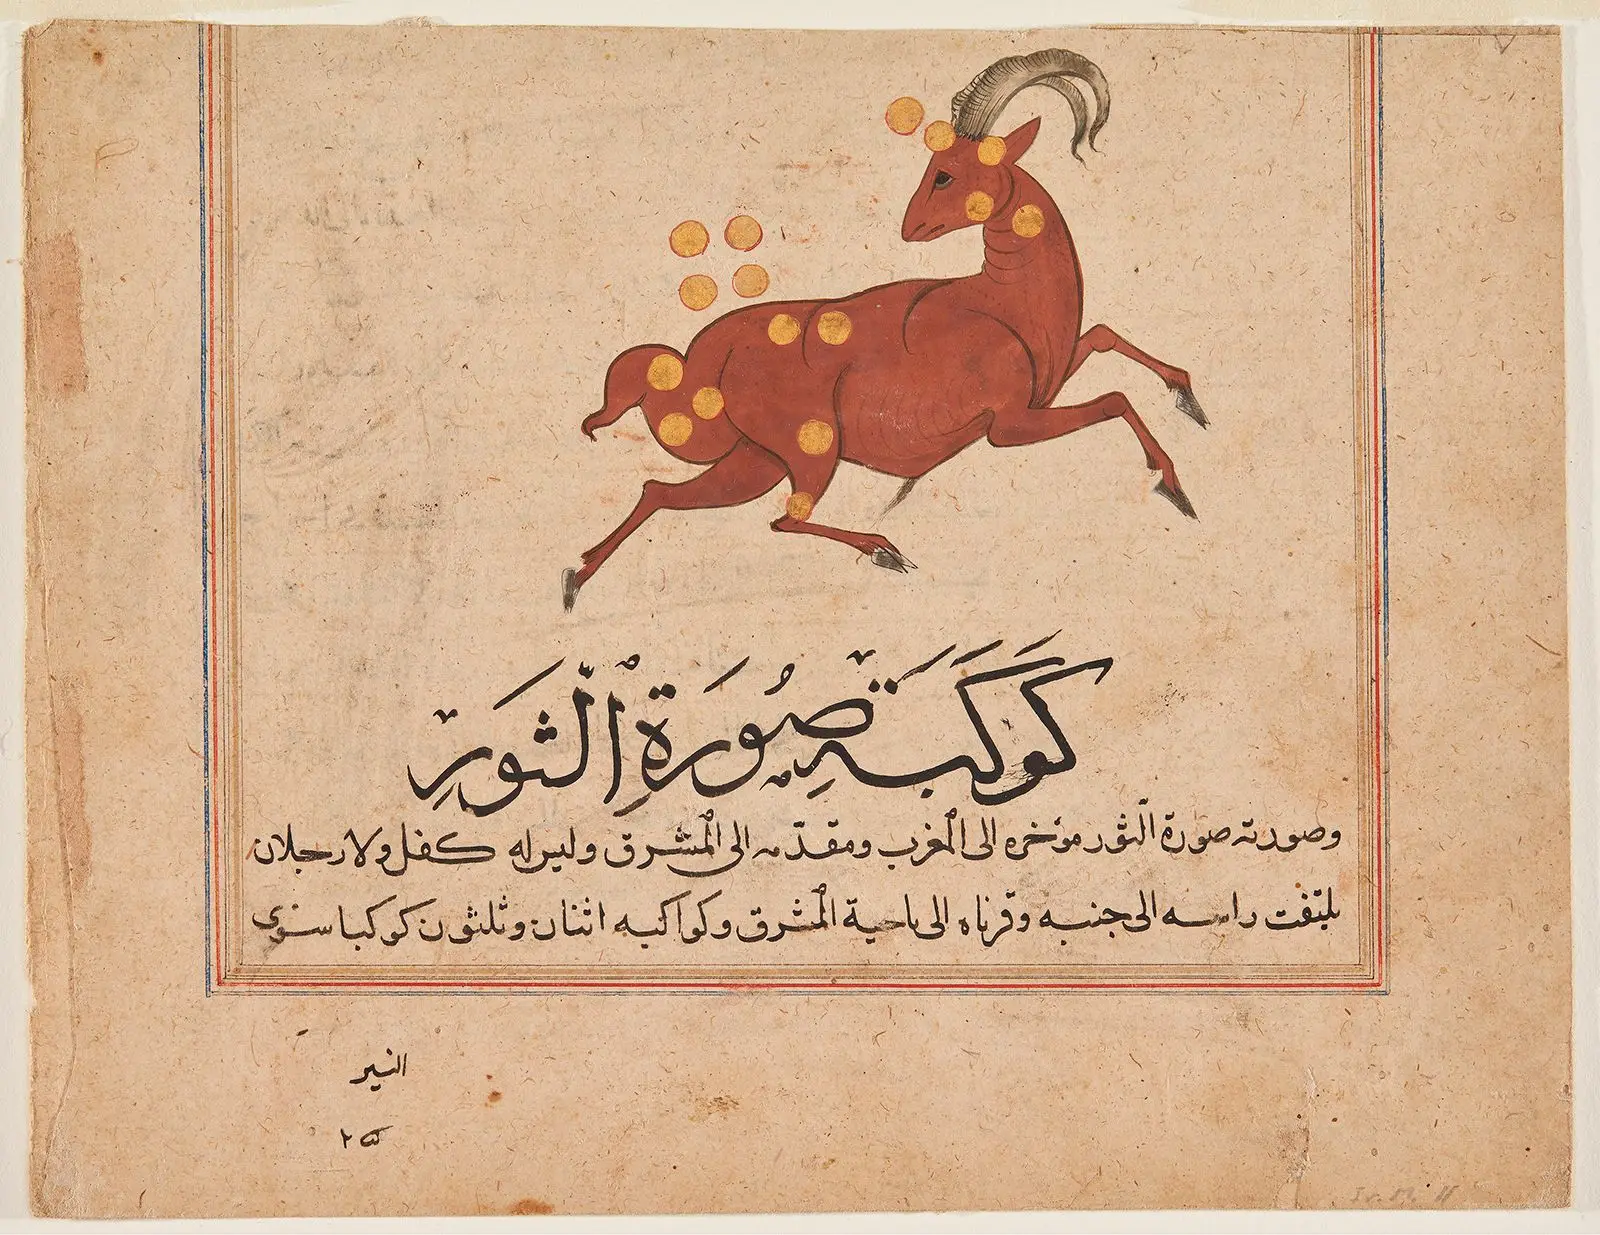 كَوكَبَة صُورَةِ الثَّورِ
وصورته صورة الثور مؤخره الى المغرب ومقدّمه الى المشرق وليس له كفل ولا رجلان
يلتفت راسه الى جنبه وقرناه الى ناحية المشرق وكواكبه اثنان وثلثون كوكبا سوى
النير